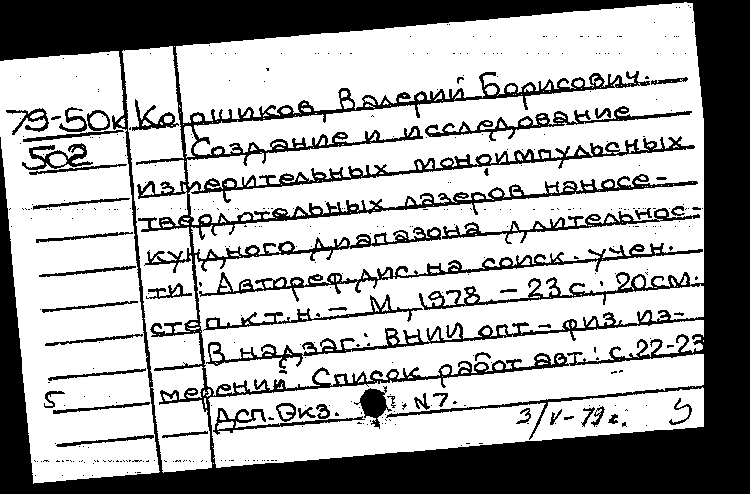 79-50к Коршиков, Валерий Борисович.
502 Создание и исследование
измерительных моноимпульсных
твердотельных лазеров наносе-
кундного диапазона длительнос-
ти: Автореф. дис. на соиск. учен.
степ. к.т.н. – М., 1978. – 23 с.; 20 см.
В надзаг.: ВНИИ опт.-физ. из-
5 мерений. Список работ авт.: с. 22-23
ДСП. Экз. N7.
3/V-79г.